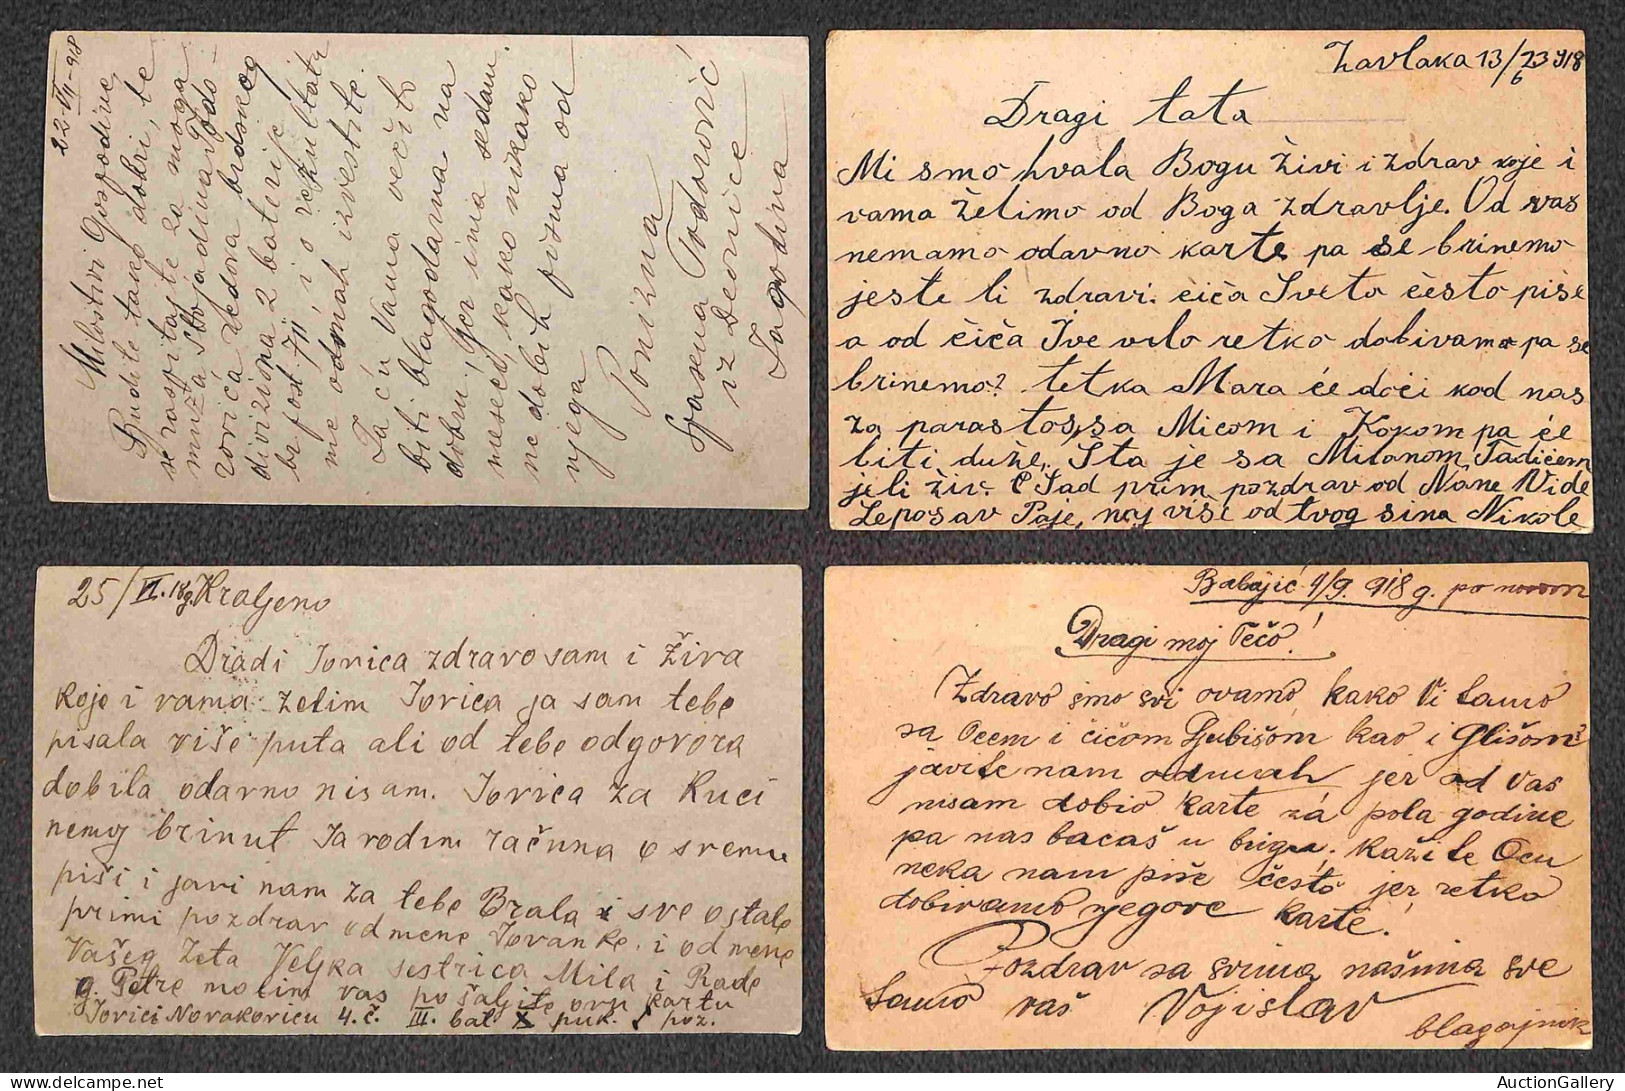 22-VII-918
Milostivi Gospodine,
Budite tako dobri, te
se raspitajte za moga
muža Stojadina Todo-
rovića redova brdskog
diviziona 2 baterije
br post. 711 i o rezultatu
me odmah izvestite.
Ja ću Vama večito
biti blagodarna na
dobru, jer ima sedam
meseci, kako nikako
ne dobih pisma od
njega
Ponizna
Todorović
iz Deonice
Jagodina
Zavlaka 13/6 23 918
Dragi tata
Mi smo hvala Bogu živi i zdrav koje i
vama želimo od Boga zdravlje. Od vas
nemamo odavno karte pa se brinemo
jeste li zdravi. čiča Sveto čésto piše
a od čiča Ive vrlo retko dobivamo pa se
brinemo? tetka Mara će doći kod nas
za parastos, sa Micom i Kokom pa će
biti duže. Šta je sa Milanom Tadićem
jeli živ. Sad prim pozdrav od Nane Vide
Leposav Paje, naj više od tvog sina Nikole
25/VI. 18g. Kraljevo
Dradi Jovica zdravo sam i živa
koje i vama želim Jovica ja sam tebe
pisala više puta ali od tebe odgovora
dobila odavno nisam. Jovica za Kuci
nemoj brinut Ja vodim računa o svemu
piši i javi nam za tebe Brala i sve ostale
primi pozdrav od mene Jovanke. i od mene
Vašeg zeta Veljka sestrica Mila i Rade
g. Petre molim vas pošaljite ovu kartu
Jovici Novakovicu 4. č. III. bat X puk. poz.
Babajić 1/9. 918 g. po novom
Dragi moj Tečo!
Zdravo smo svi ovamo, kako Vi tamo
sa Ocem i čičom Ljubišom kao i Glišom?
javite nam odmah jer od Vas
nisam dobio karte za pola godine
pa nas bacaš u brigu. Kažite Ocu
neka nam piše često jer retko
dobivamo njegove karte!
Pozdrav sa svima našima sve
tamo vaš Vojislav
blagajnik
AuctionGallery